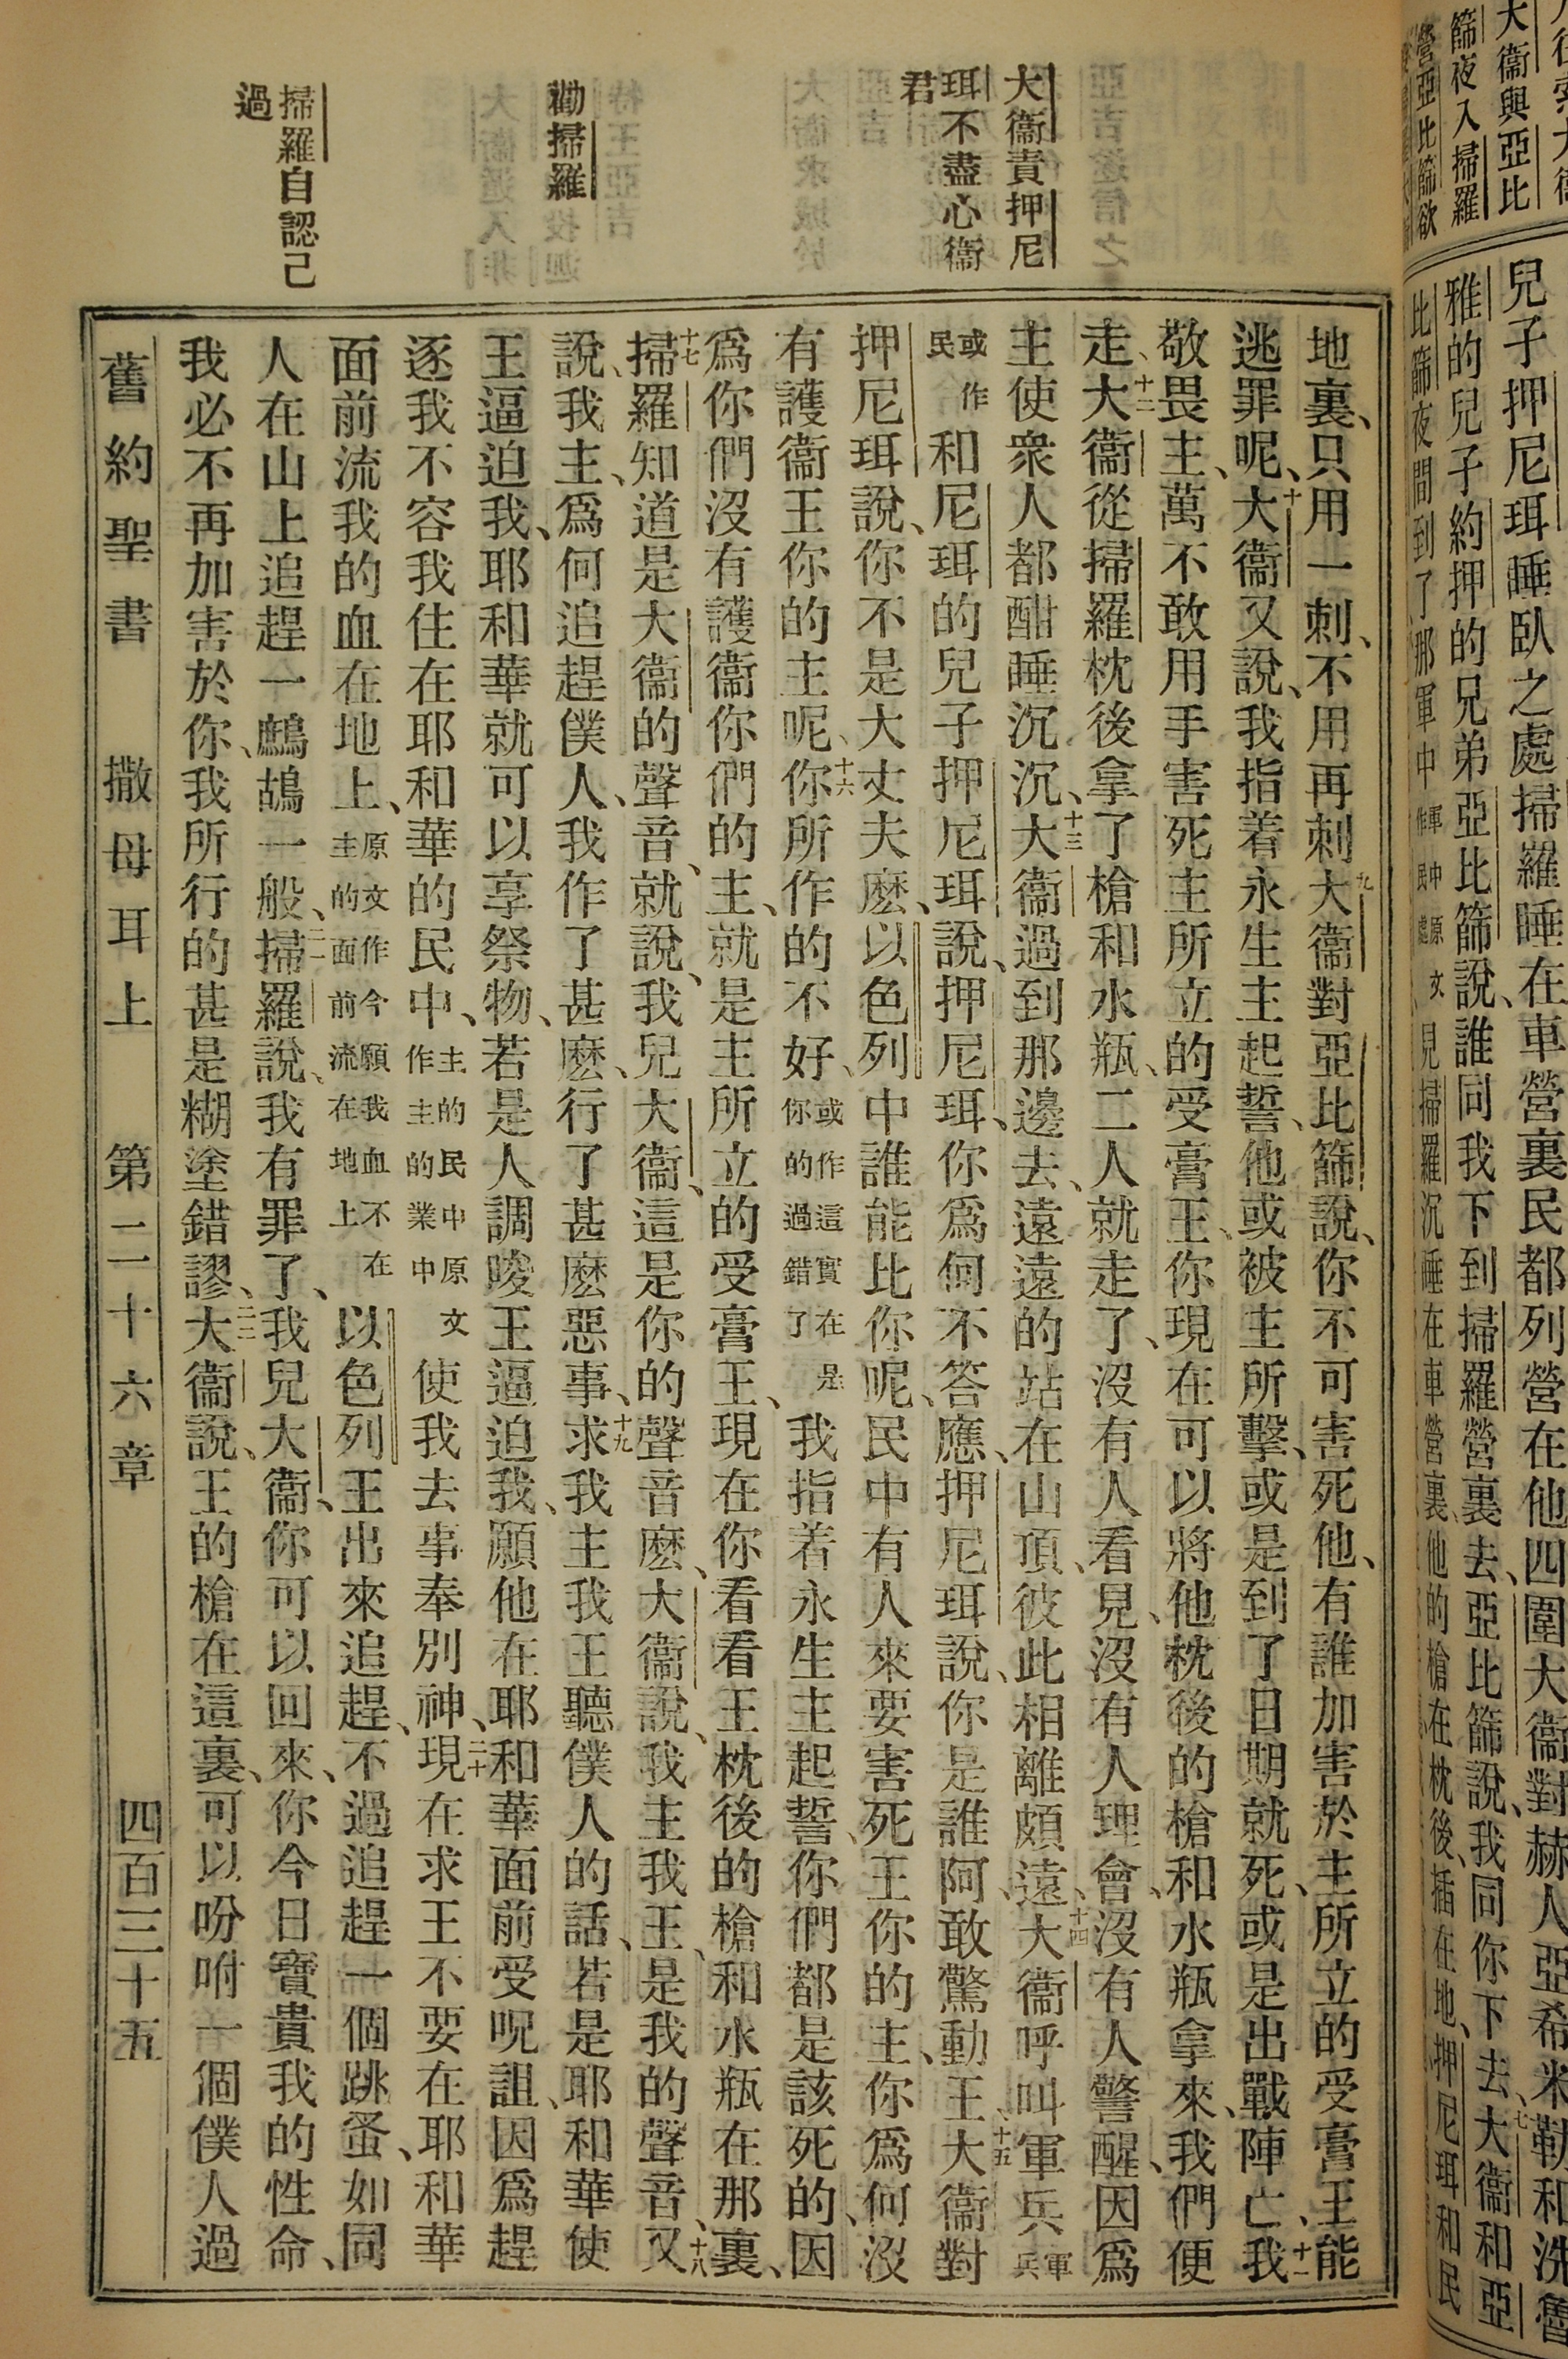 大衞與亞比
篩夜入掃羅
營亞比篩欲
兒子押尼珥睡臥之處掃羅睡在車營裏民都列營在他四圍大衞對赫人亞希米勒和洗魯
雅的兒子約押的兄弟亞比篩說、誰同我下到掃羅營裏去、亞比篩說、我同你下去、七大衞和亞
比篩夜間到了那軍中
見掃羅沉睡在車營裏、他的槍在枕後、插在地、押尼珥和民
大衞責押尼
珥不盡心衞
君
勸掃羅
掃羅自認己
過
地裏、只用一刺、不用再刺九大衞對亞比篩說、你不可害死他、有誰加害於主所立的受膏王能
逃罪呢、十大衞又說、我指着永生主起誓、他或被主所擊、或是到了日期就死、或是出戰陣亡、十一我
敬畏主、萬不敢用手害死主所立的受膏王、你現在可以將他枕後的槍和水瓶拿來、我們便
走、十二大衞從掃羅枕後拿了槍和水瓶、二人就走了、沒有人看見、沒有人理會、沒有人警醒、因爲
主使衆人都酣睡沉沉、十三大衞過到那邊去、遠遠的站在山頂、彼此相離頗遠、十四大衞呼叫軍兵軍兵
或作民和尼珥的兒子押尼珥說、押尼珥、你爲何不答應、押尼珥說、你是誰阿、敢驚動王、十五大衞對
押尼珥說、你不是大丈夫麽、以色列中誰能比你呢、民中有人來要害死王你的主、你爲何沒
有護衞王你的主呢、十六你所作的不好、或作這實在是你的過錯了我指着永生主起誓、你們都是該死的、因
爲你們沒有護衞你們的主、就是主所立的受膏王、現在你看看王枕後的槍和水瓶在那裏、
十七掃羅知道是大衞的聲音、就說、我兒大衞、這是你的聲音麽、大衞說、我主我王、是我的聲音、十八又
說、我主、爲何追趕僕人、我作了甚麽、行了甚麽惡事、十九求我主我王聽僕人的話、若是耶和華使
王逼迫我、耶和華就可以享祭物、若是人調唆王逼迫我、願他在耶和華面前受呪詛、因爲趕
逐我不容我住在耶和華的民中、主的民中原文作主的業中使我去事奉別神、二十現在求王不要在耶和華
面前流我的血在地上、原文作今願我血不在主的面前流在地上以色列王出來追趕、不過追趕一個跳蚤、如同
人在山上追趕一鷓鴣一般、二一掃羅說、我有罪了、我兒大衞、你可以回來、你今日寶貴我的性命、
我必不再加害於你、我所行的甚是糊塗錯謬、二二大衞說、王的槍在這裏、可以吩咐一個僕人過
舊約聖書 撒母耳上 第二十六章 四百三十五